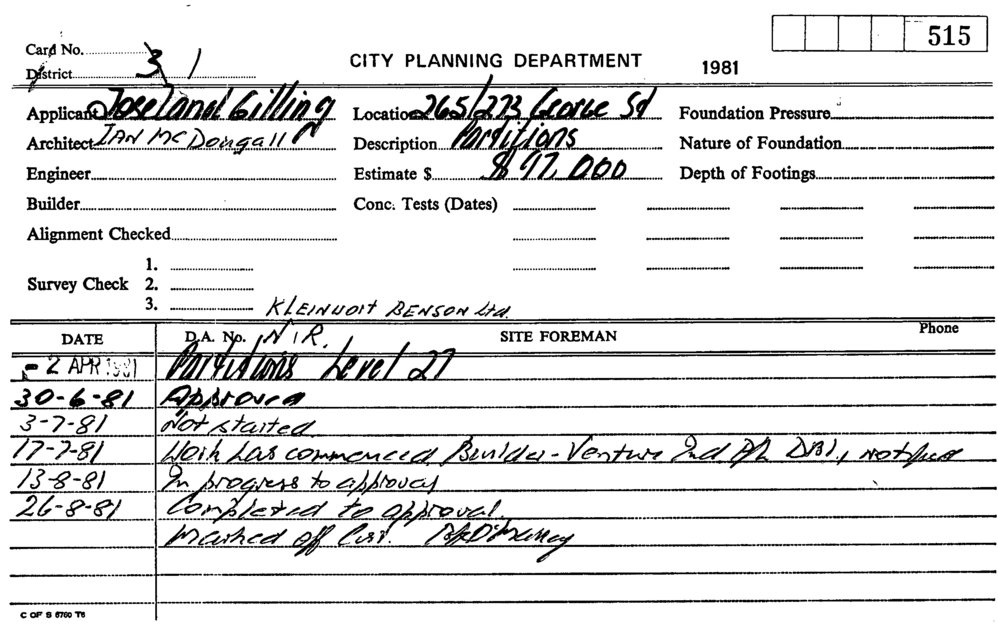 515
Card No.
District 3 1
CITY PLANNING DEPARTMENT 1981
Applicant Joseland Gilling Location 265/273 George St Foundation Pressure
Architect IAN McDougall Description Partitions Nature of Foundation
Engineer Estimate $ $97,000 Depth of Footings
Builder Conc. Tests (Dates)
Alignment Checked
1.
Survey Check 2.
3. KLEINWORT BENSON Ltd.
DATE D.A. No. N/R. SITE FOREMAN Phone
- 2 APR 1981 Partitions Level 27
30-6-81 Approved
3-7-81 Not started
17-7-81 Work has commenced Builder - Venture Ind P/L DBI, notified
13-8-81 In progress to approval
26-8-81 Completed to approval.
Marked off
C OF S 6760 T6